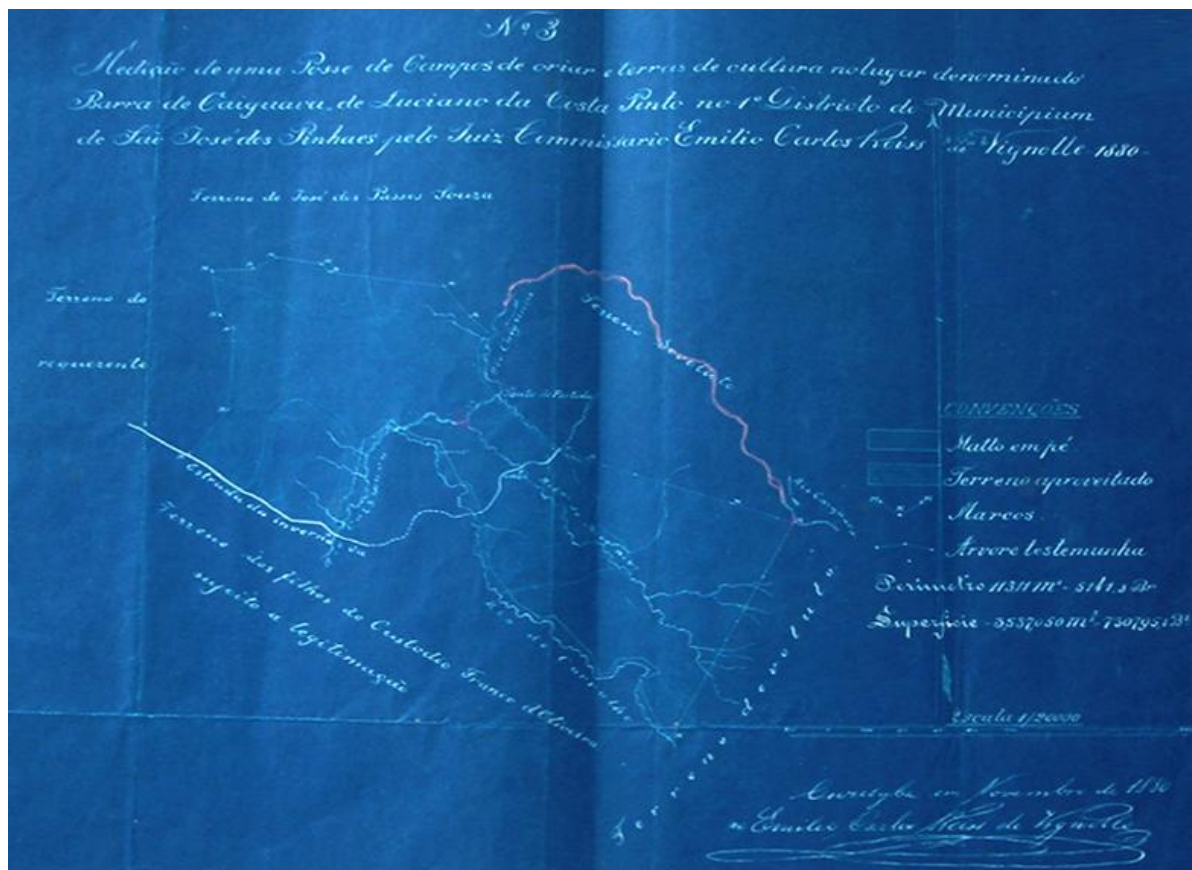 Nº 3
Medição de uma Posse de Campos de criar e terras de cultura no lugar denominado
Barra de Caiguava, de Luciano da Costa Pinto no 1º Districto do Municipium
de São José dos Pinhaes pelo Juiz Commissario Emilio Carlos Keiss de Vignolle 1880-
Terreno de José dos Passos Souza
Terreno do
requerente
Terreno devoluto
Ponto de Partida
Estrada da invernada
Terreno dos filhos de Custodio Franco d'Oliveira
sugeito a legitimação
Terreno devoluto
CONVENÇÕES
Matto em pé
Terreno aproveitado
Marcos
Árvore testemunha
Perimetro
Superficie
Escala 1/20000
Curityba em Novembro de 1880
Emilio Carlos Keiss de Vignolle